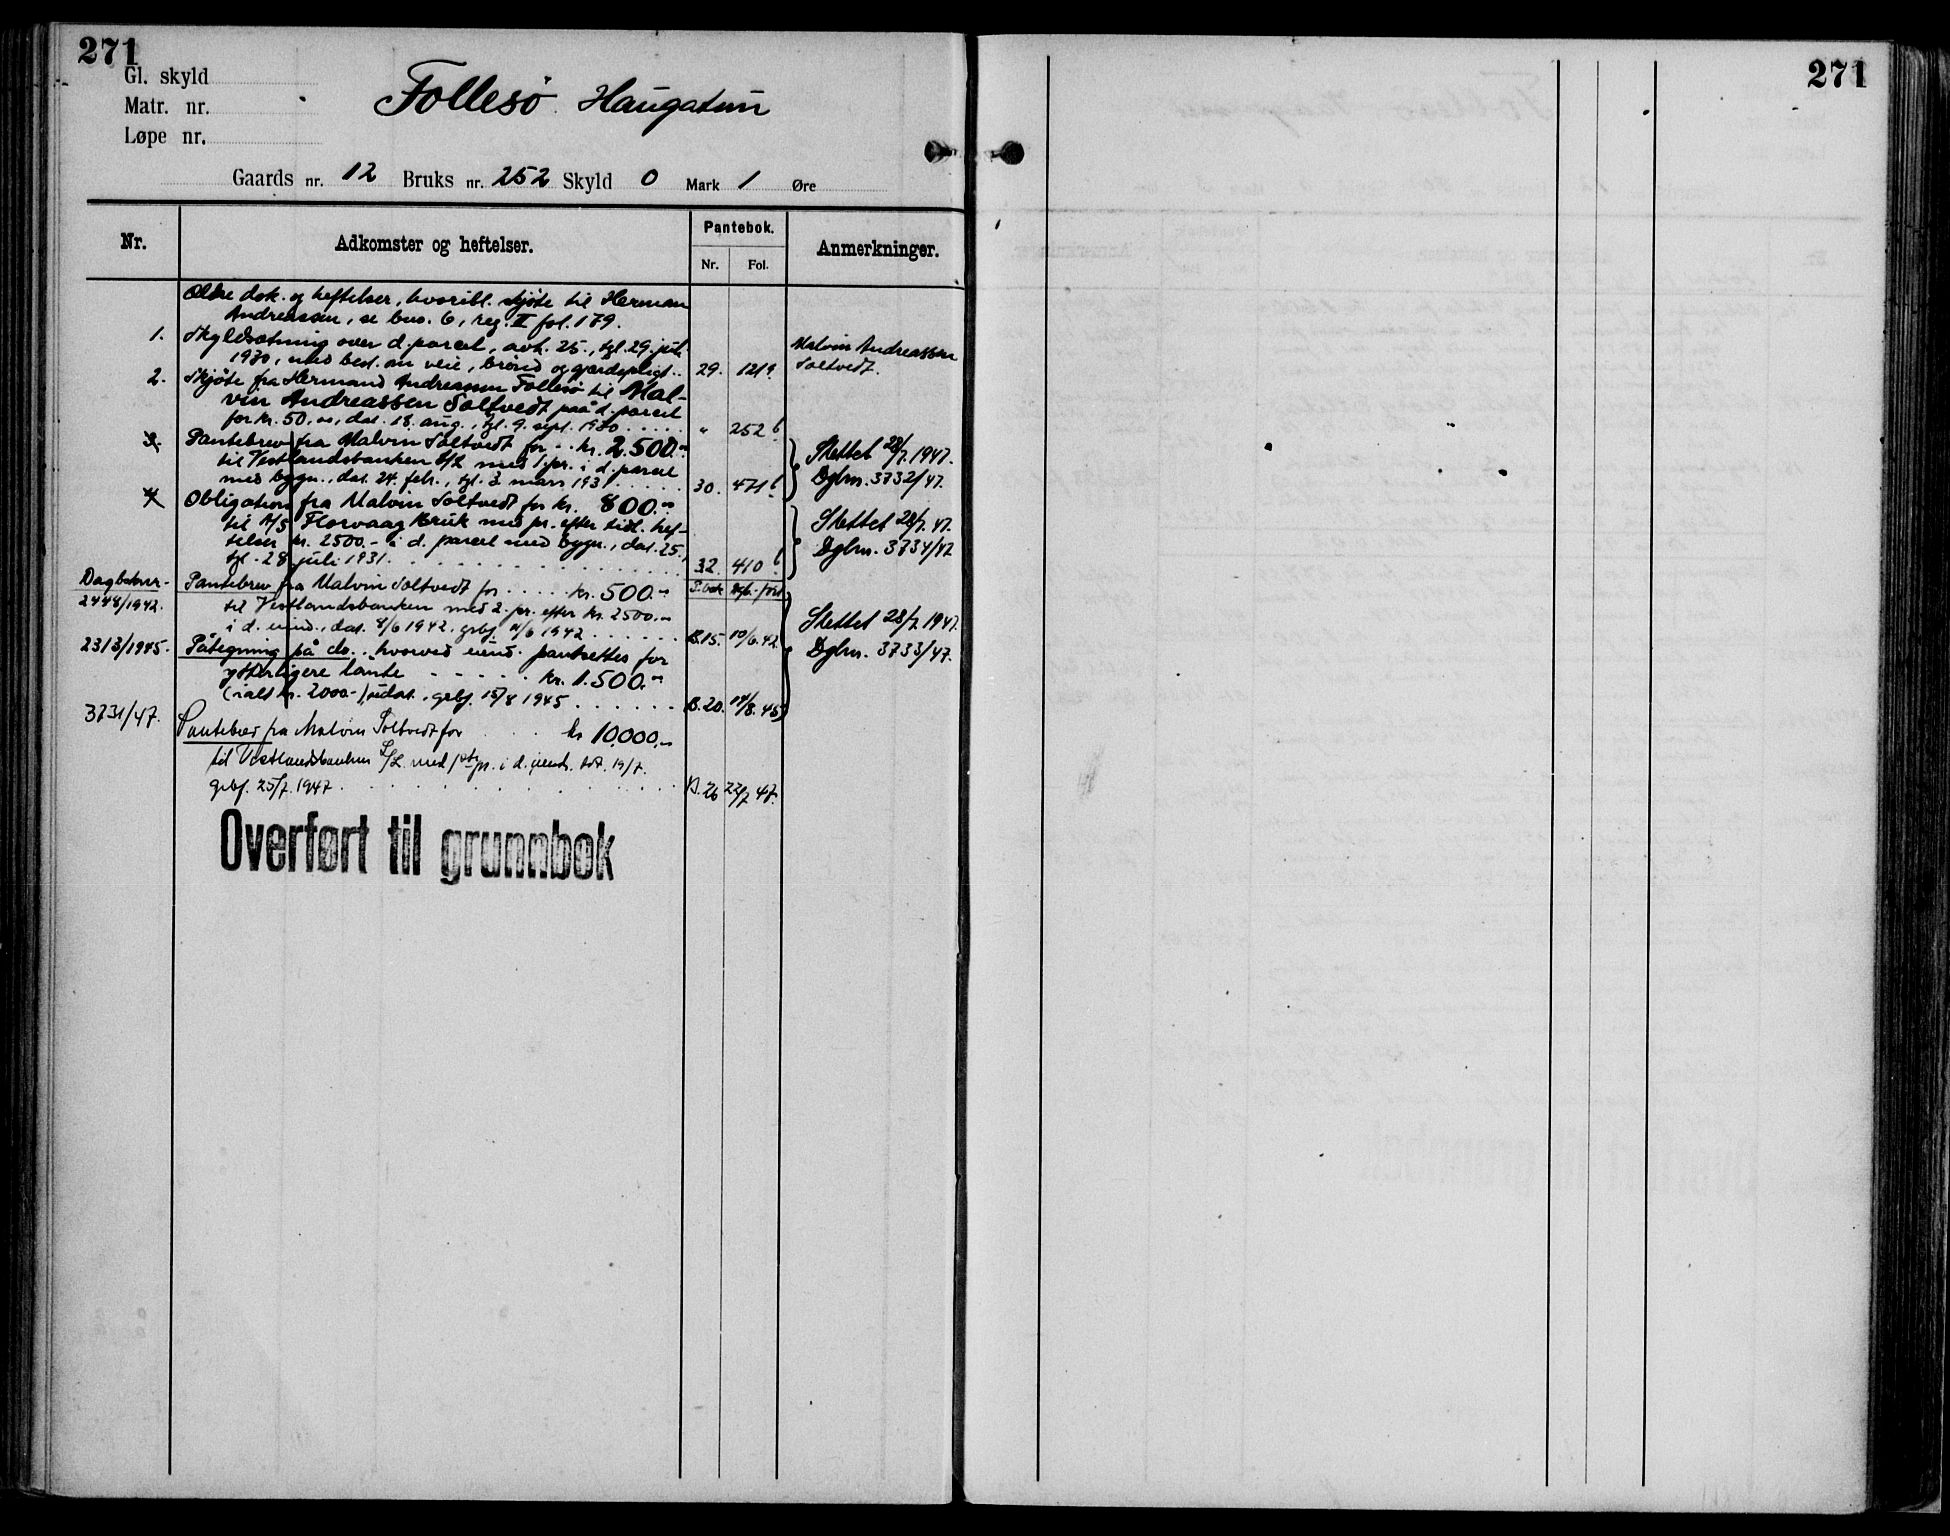 271
Gl. skyld
Matr. nr.
Løpe nr.
Follesø Haugatun
Gaards nr. 12 Bruks nr. 252 Skyld 0 Mark 1 Øre
Nr. Adkomster og heftelser. Pantebok. Anmerkninger.
Nr. Fol.
Ældre dok. og heftelser, hvoribl. skjøte til Herman
Andreassen, se bno. 6, reg. II fol. 179.
1. Skyldsætning over d. parcel, avh. 25., tgl. 29. juli
1930, med best. om veie, brønd og gjærdepligt.. 29. 121a
Malvin Andreassen
Soltvedt.
2. Skjøte fra Hermand Andreassen Follesø til Mal-
vin Andreassen Soltvedt paa d. parcel
for kr. 50.00, dat. 18. aug., tgl. 9. sept. 1930 ..... " 252b
3. Pantebrev fra Malvin Soltvedt for .. kr. 2.500.00
til Vestlandsbanken L/L med 1. pr. i d. parcel
med bygn., dat. 24. febr., tgl. 3. mars 1931 ..... 30. 471b
Slettet 28/7. 1947.
Dgbnr. 3732/47.
4 Obligation fra Malvin Soltvedt for kr. 800.00
til A/S Florvaag Bruk med pr. efter tidl. hef-
telser kr. 2500.- i d. parcel med bygn., dat. 25.,
tgl. 28. juli 1931. ..... 32. 410b
Slettet 28/7. 47.
Dgbnr. 3734/47
Dagboknr. P.bok Dgb. ført
2448/1942. Pantebrev fra Malvin Soltvedt for ..... kr. 500.00
til Vestlandsbanken med 2. pr. efter kr. 2500.00
i d. eiend., dat. 8/6 1942, grbf. 11/6 1942 ...... B.15. 10/6. 42
Slettet 28/7. 1947.
Dgbnr. 3733/47.
2313/1945. Påtegning på do., hvorved eiend. pantsettes for
ytterligere lånte ..... kr. 1.500.00
(ialt kr. 2000.-), udat., grbf. 15/8 1945 ...... B.20. 14/8. 45
3731/47. Pantebrev fra Malvin Soltvedt for .... kr 10.000.00
til Vestlandsbanken L/L med 1ste pr. i d. eiend. dat. 19/7.
grbf. 25/7. 1947 ........ B.26 22/7 47.
Overført til grunnbok
271